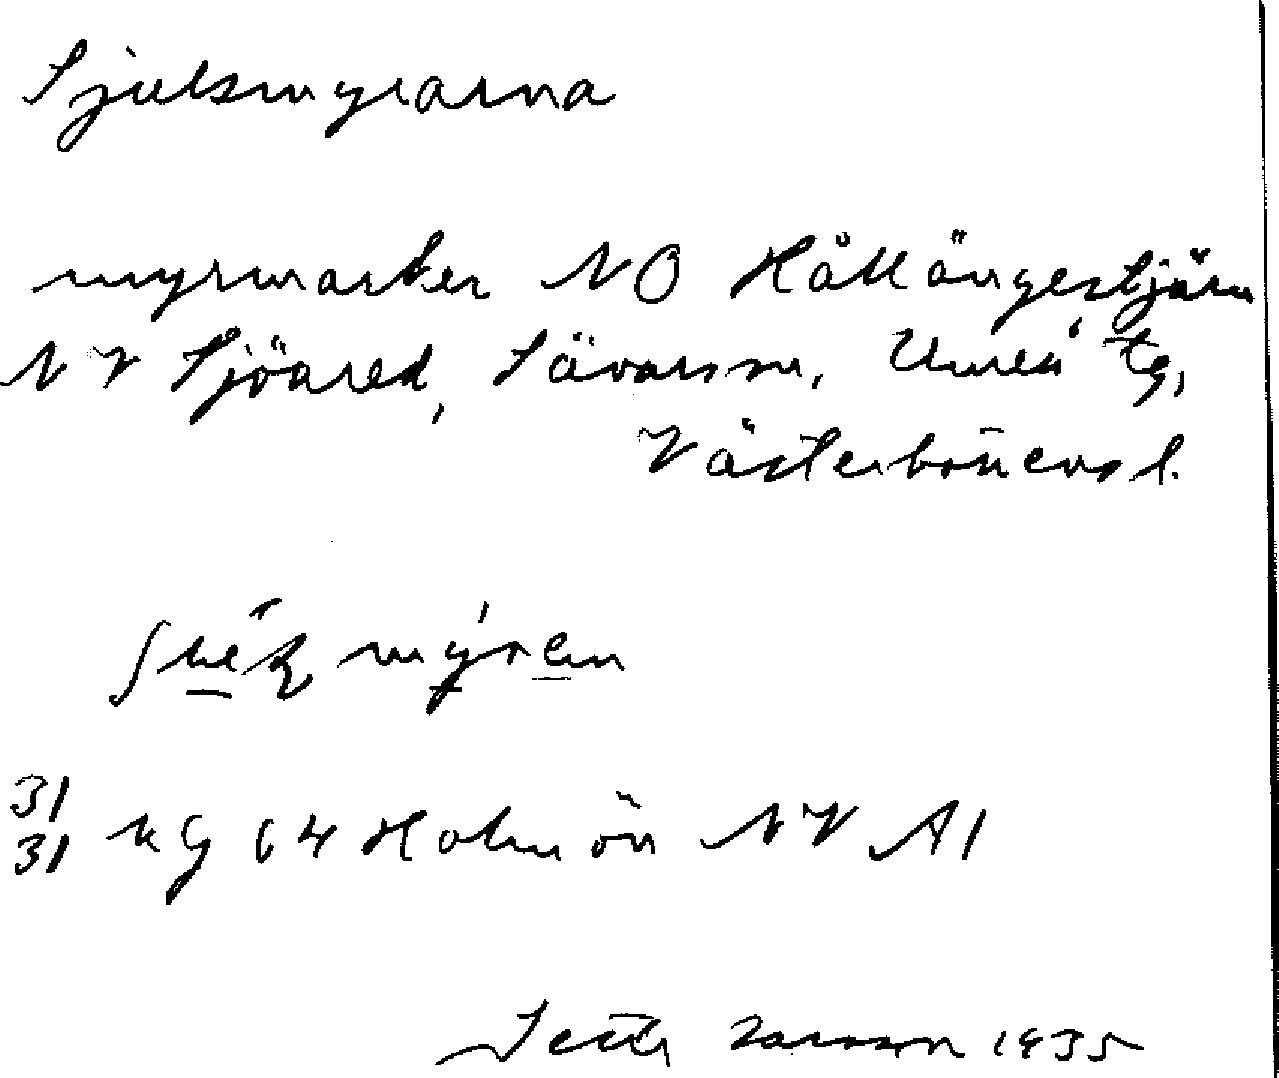 Sjulsmyrarna
myrmarker NO Hållängestjärn
NV Sjöared, Sävars sn, Umeå tg,
Västerbottens l.
myren
31
31 KG 64 Holmön NV A1
Larsson 1935